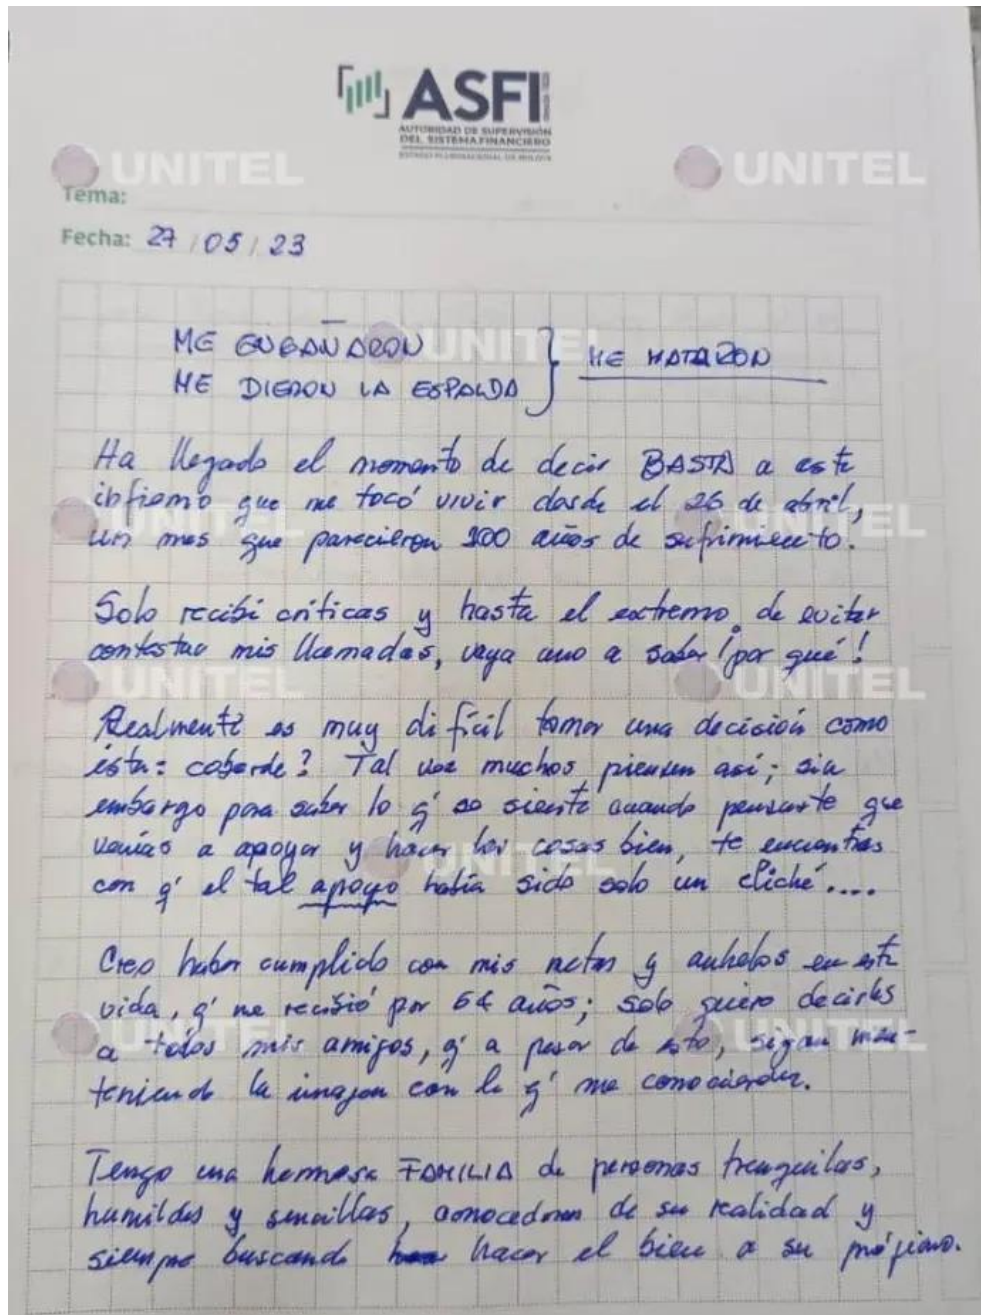 ASFI
AUTORIDAD DE SUPERVISIÓN
DEL SISTEMA FINANCIERO
ESTADO PLURINACIONAL DE BOLIVIA
UNITEL UNITEL
Tema:
Fecha: 27/05/23
ME ENGAÑARON
ME DIERON LA ESPALDA } ME MATARON
UNITEL
Ha llegado el momento de decir BASTA a este
infierno que me tocó vivir desde el 26 de abril,
un mes que parecieron 100 años de sufrimiento.
UNITEL UNITEL
Solo recibí críticas y hasta el extremo de evitar
contestar mis llamadas, vaya uno a saber ¡por qué!
UNITEL UNITEL
Realmente es muy difícil tomar una decisión como
ésta: coberde? Tal vez muchos piensen así; sin
embargo para saber lo q' se siente cuando pensaste que
venías a apoyar y hacer las cosas bien, te encuentras
con q' el tal apoyo había sido solo un cliché....
UNITEL
Creo haber cumplido con mis metas y anhelos en esta
vida, q' me recibió por 64 años; solo quiero decirles
a todos mis amigos, q' a pesar de esto, sigan man-
teniendo la imagen con la q' me conocieron.
UNITEL UNITEL
Tengo una hermosa FAMILIA de personas tranquilas,
humildes y sencillas, conocedoras de su realidad y
siempre buscando hacer el bien a su prójimo.